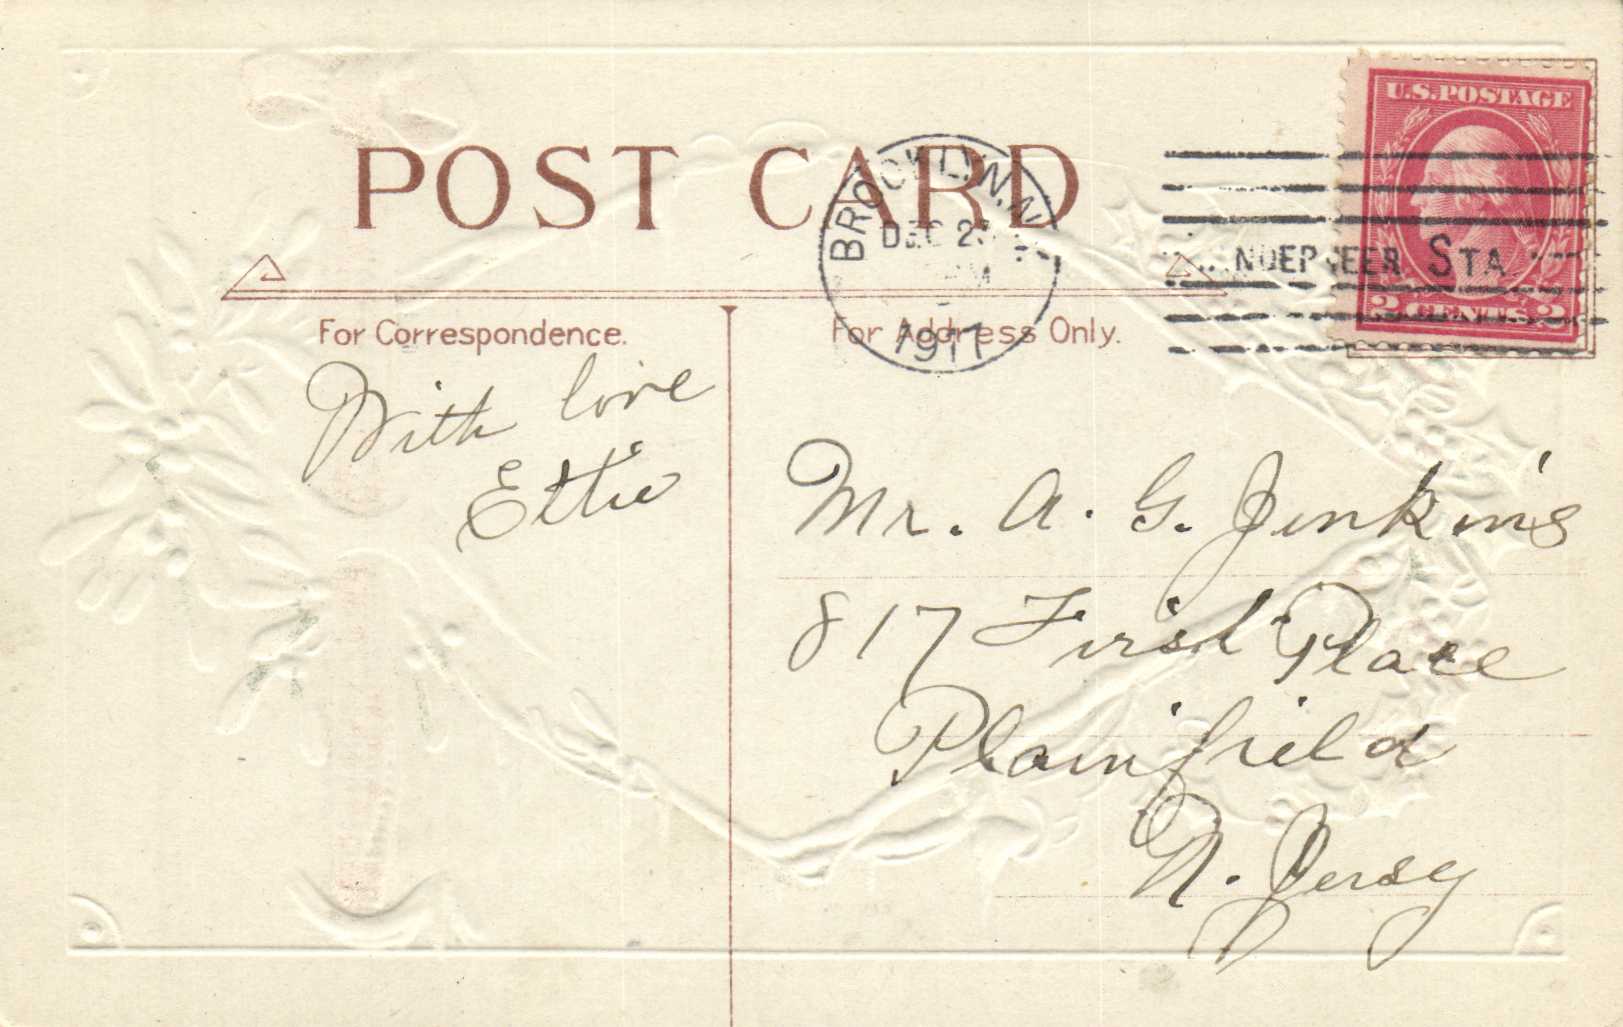 POST CARD
BROOKLYN, N.Y.
DEC 23
1917
STA
U.S. POSTAGE
2 CENTS 2
For Correspondence.
For Address Only.
With love
Ettie
Mr. A. G. Jenkins
817 First Place
Plainfield
N. Jersey